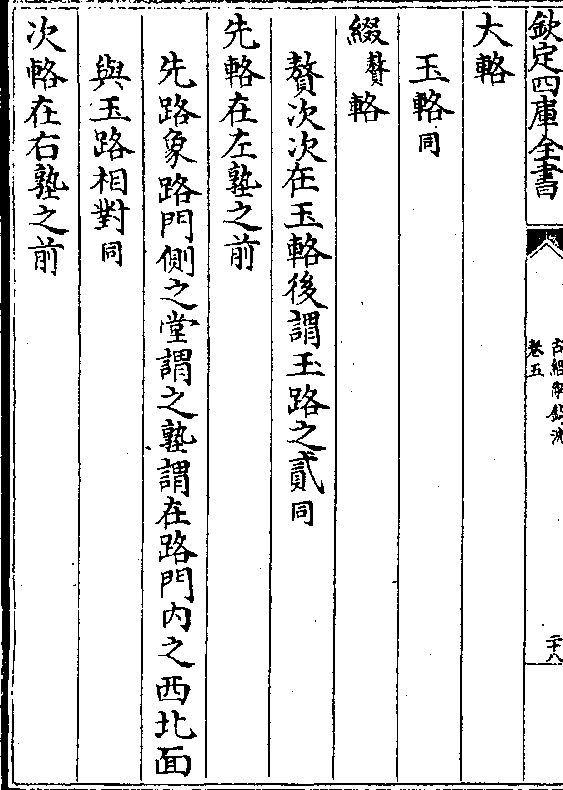 欽定四庫全書
古經解鉤沈
卷五
二十八
大輅
玉輅同
綴贅輅
贅次次在玉輅後謂玉路之貳同
先輅在左塾之前
先路象路門側之堂謂之塾謂在路門內之西北面
與玉路相對同
次輅在右塾之前